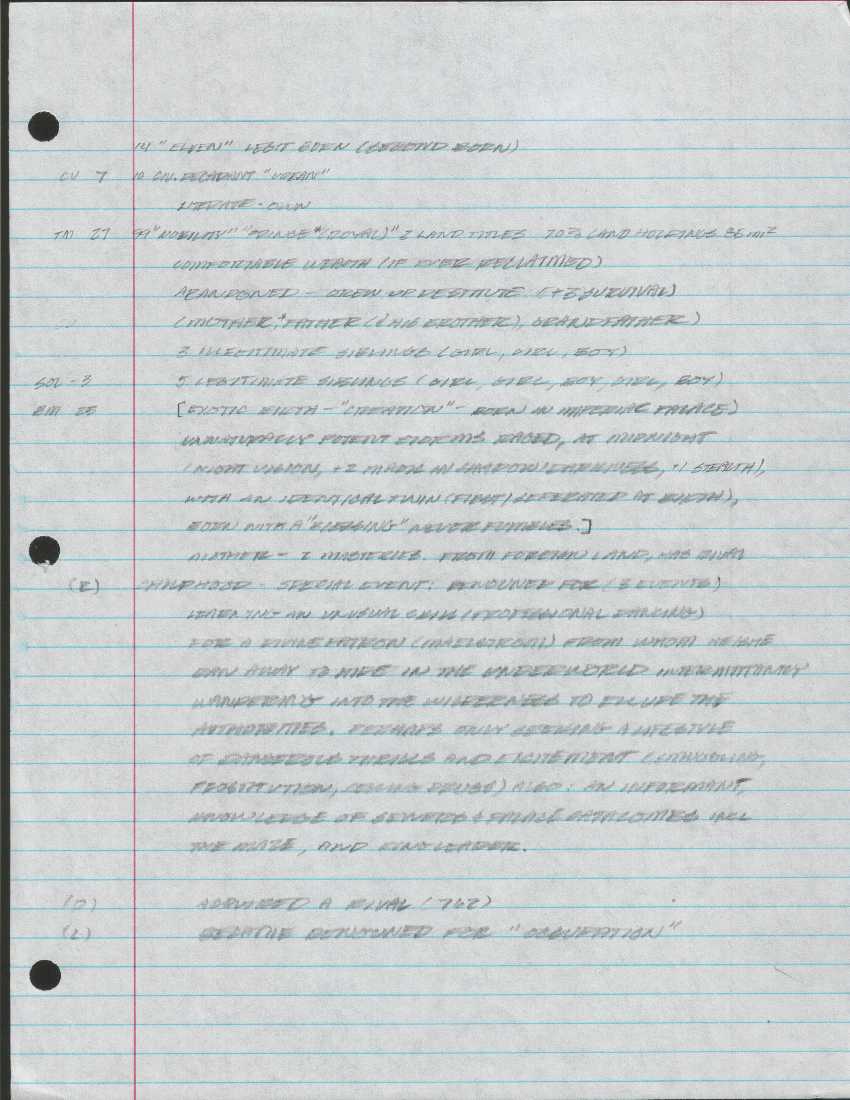 14 "ELVEN" LEGIT BORN (SECOND BORN)
CU 7 10 CIV. DECADENT "URBAN"
LITERATE - OWN
TM 27 99 "NOBILITY" "PRINCE* (ROYAL)" 2 LAND TITLES 70% LAND HOLDINGS 36 mi²
COMFORTABLE WEALTH (IF EVER RECLAIMED)
ABANDONED - GREW UP DESTITUTE (+2 SURVIVAL)
(MOTHER, *FATHER (& HIS BROTHER), GRANDFATHER)
3 ILLEGITIMATE SIBLINGS (GIRL, GIRL, BOY)
SOL - 3 5 LEGITIMATE SIBLINGS (GIRL, GIRL, BOY, GIRL, BOY)
BM 25 [EXOTIC BIRTH - "CREATION" - BORN IN IMPERIAL PALACE)
UNNATURALLY POTENT STORMS RAGED, AT MIDNIGHT
(NIGHT VISION, +2 MAGIC IN SHADOW/DARKNESS, +1 STEALTH),
WITH AN IDENTICAL TWIN (FIRST/SEPERATED AT BIRTH),
BORN WITH A "BLESSING" NEVER FUMBLES.]
MOTHER - 2 MYSTERIES. FROM FOREIGN LAND, WAS
(E) CHILDHOOD - SPECIAL EVENT: RENOWNED FOR (3 EVENTS)
LEARNING AN UNUSUAL SKILL (PROFESSIONAL DANCING)
FOR A DIVINE PATRON (MAELSTROM) FROM WHOM HE/SHE
RAN AWAY TO HIDE IN THE UNDERWORLD INTERMITTANTLY
WANDERING INTO THE WILDERNESS TO ELLUDE THE
AUTHORITIES. PERHAPS ONLY SEEKING A LIFESTYLE
OF DANGEROUS THRILLS AND EXCITEMENT (
PROSTITUTION, SELLING DRUGS) ALSO: AN INFORMANT,
KNOWLEDGE OF SEWERS & PALACE CATACOMBS INCL
THE MAZE, AND RINGLEADER.
(D) ACQUIRED A RIVAL (762)
(L) BECAME RENOWNED FOR "OCCUPATION"